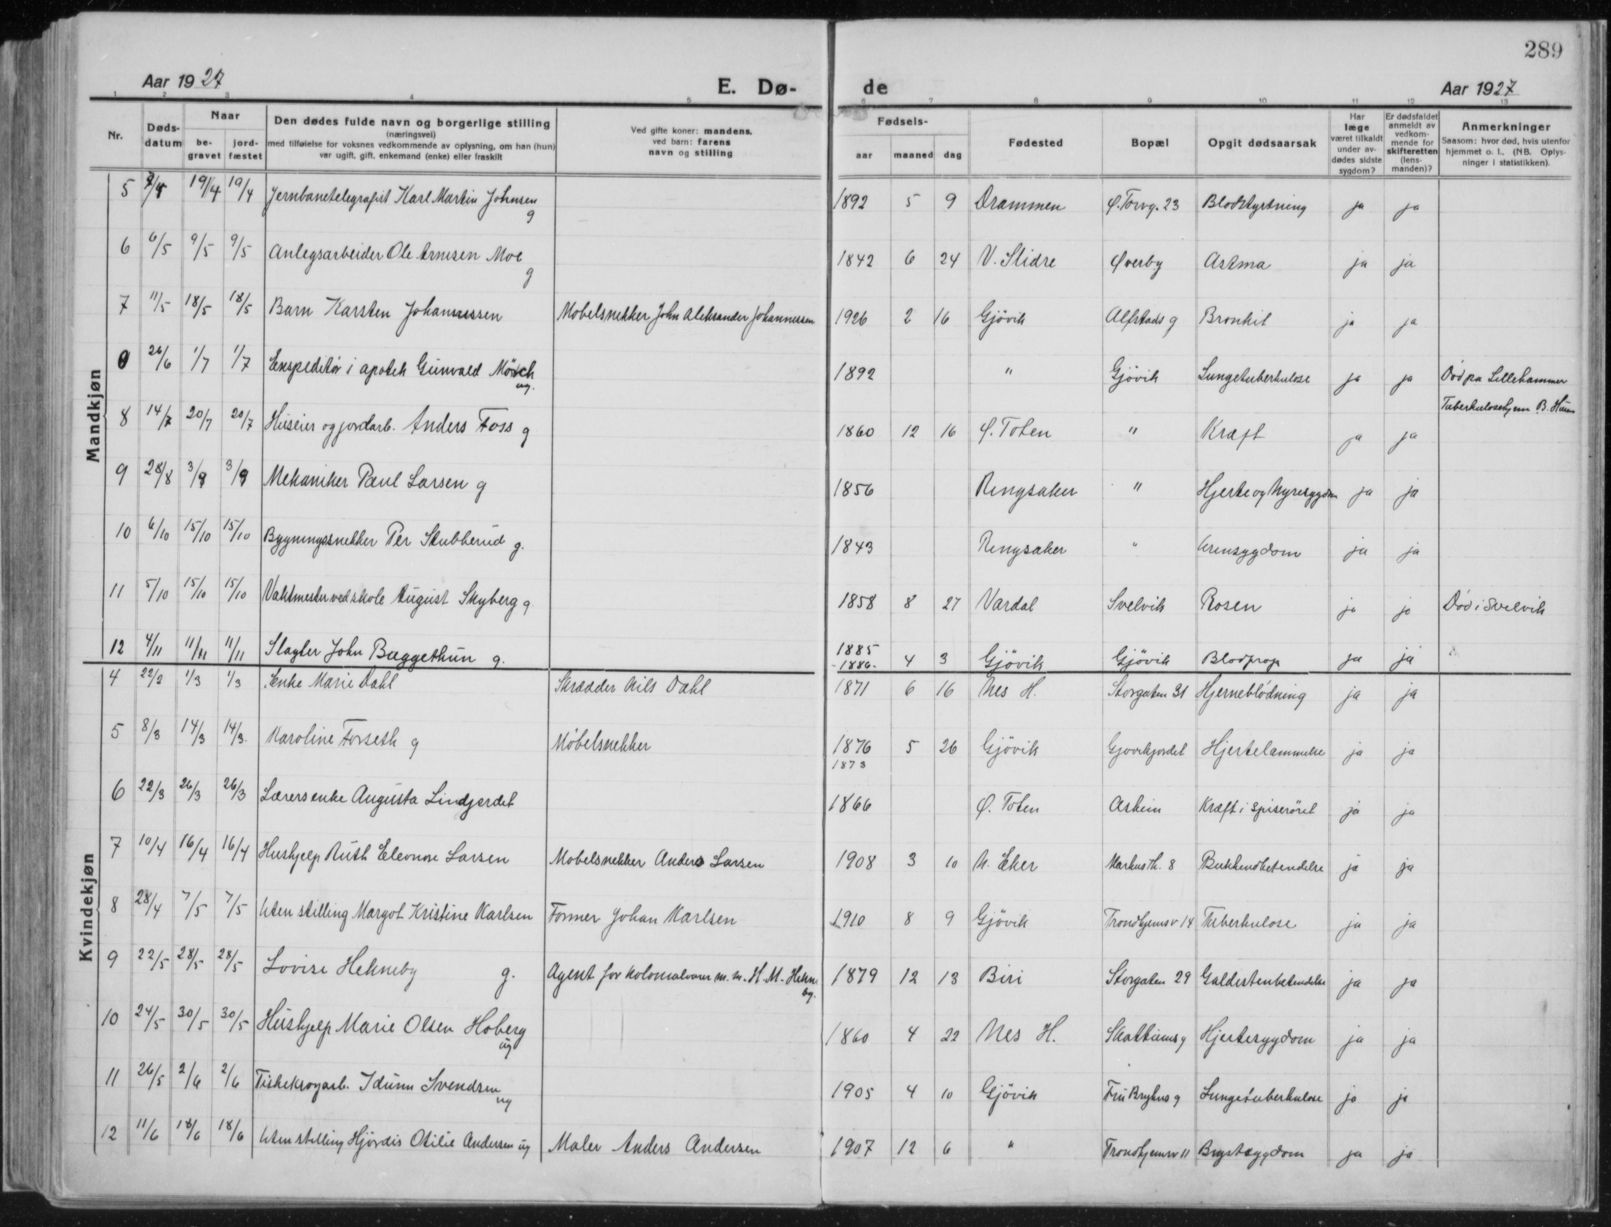 289
Aar 1927 E. Dø- de Aar 1927
1 2 3 4 5 6 7 8 9 10 11 12 13
Nr. Døds-datum Naar be-gravet jord-fæstet Den dødes fulde navn og borgerlige stilling (næringsvei) med tilføielse for voksnes vedkommende av oplysning, om han (hun) var ugift, gift, enkemand (enke) eller fraskilt Ved gifte koner: mandens, ved barn: farens navn og stilling Fødsels- aar maaned dag Fødested Bopæl Opgit dødsaarsak Har læge været tilkaldt under av-dødes sidste sygdom? Er dødsfaldet anmeldt av vedkom-mende for skifteretten (lens-manden)? Anmerkninger Saasom: hvor død, hvis utenfor hjemmet o. l., (NB. Oplys-ninger i statistikken).
Mandkjøn
5 19/4 19/4 Jernbanetelegrafist Karl Martin Johnsen g 1892 5 9 Drammen Ø. Torvg. 23 Blodstyrtning ja ja
6 6/5 9/5 9/5 Anlegsarbeider Ole Arnesen Moe g 1842 6 24 V. Slidre Øverby Astma ja ja
7 11/5 18/5 18/5 Barn Karsten Johannessen Møbelsnekker John Aleksander Johannessen 1926 2 16 Gjövik Alfstads g Bronkit ja ja
0 26/6 1/7 1/7 Ekspeditör i apotek Gunvald ug. 1892 " Gjövik Lungetuberkulose ja ja Död paa Lillehammer
Tuberkulosehjem B. Hum
8 14/7 20/7 20/7 Huseier og jordarb. Anders Foss g 1860 12 16 Ø. Toten " Kræft ja ja
9 28/8 3/9 3/9 Mekaniker Paul Larsen g 1856 Ringsaker " Hjerte og Nyresygdom ja ja
10 6/10 15/10 15/10 Bygningssnekker Per Stubberud g. 1843 Ringsaker " Urinsygdom ja ja
11 5/10 15/10 15/10 Vaktmester ved skole August Skyberg g 1858 8 27 Vardal Svelvik Rosen ja ja Död i Svelvik
12 4/11 11/11 11/11 Slagter John Bæggethun g. 1885 -1886- 4 3 Gjövik Gjövik Blodprop ja ja
Kvindekjøn
4 22/2 1/3 1/3 Enke Marie Dahl Skrædder Nils Dahl 1871 6 16 Nes H. Storgaten 31 Hjerneblödning ja ja
5 8/3 14/3 14/3 Karoline Forseth g Möbelsnekker 1876 1873 5 26 Gjövik Gjövikjordet Hjertelammelse ja ja
6 22/3 26/3 26/3 Lærersenke Augusta Lindjordet 1866 Ø. Toten Askim Kræft i Spiserøret ja ja
7 10/4 16/4 16/4 Hushjelp Ruth Eleonore Larsen Møbelsnekker Anders Larsen 1908 3 10 N. Eker Markus Th. 8 Bukhindbetendelse ja ja
8 28/4 7/5 7/5 Uten stilling Margot Kristine Karlsen Former Johan Karlsen 1910 8 9 Gjövik Trondhjemsv 14 Tuberkulose ja ja
9 22/5 28/5 28/5 Lovise Hekneby g. Agent for kolonialvarer m. m. H. M. Hekneby. 1879 12 13 Biri Storgaten 29 Galdestenbetendelse ja ja
10 24/5 30/5 30/5 Hushjelp Marie Olsen Hoberg ug 1860 4 22 Nes H. Skattumsg Hjertesygdom ja ja
11 26/5 2/6 2/6 Fiskekrogarb. Idunn Svendsen ug 1905 4 10 Gjövik Fru g Lungetuberkulose ja ja
12 11/6 18/6 18/6 Uten stilling Hjördis Otilie Andersen ug Maler Anders Andersen 1907 12 6 " Trondhjemsv 11 Brystsygdom ja ja